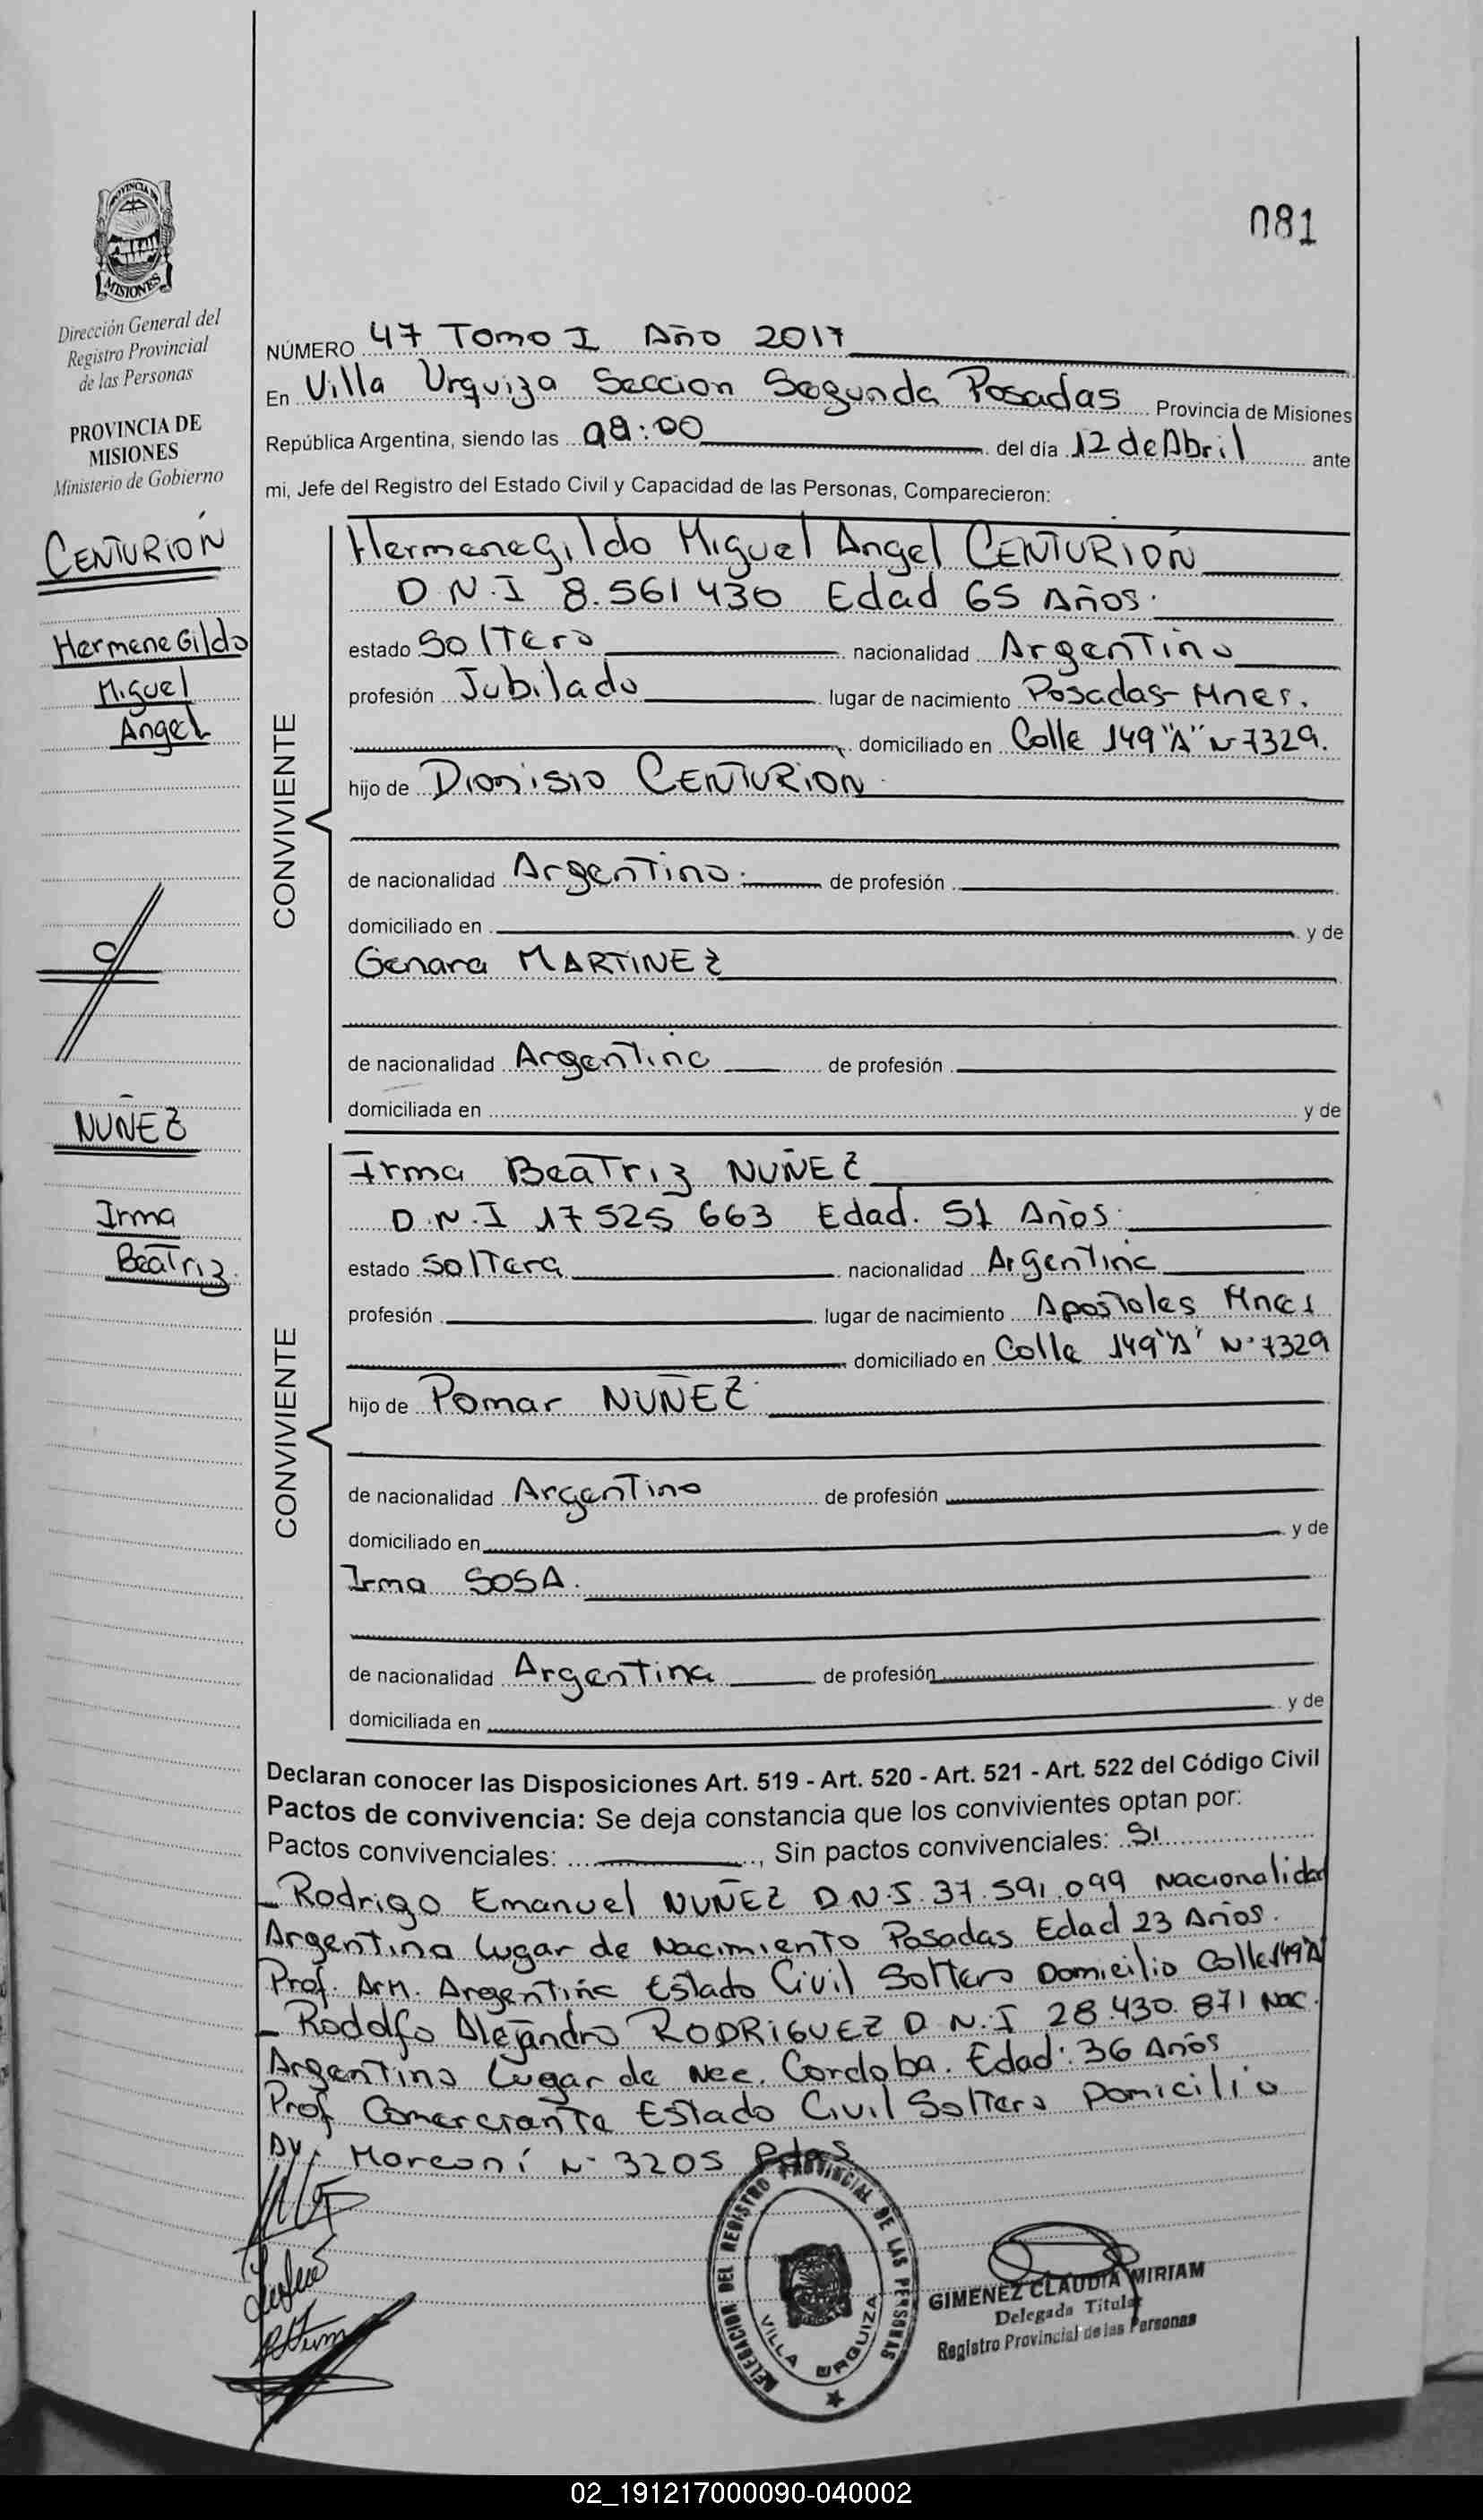 081
PROVINCIA DE
MISIONES
Dirección General del
Registro Provincial
de las Personas
PROVINCIA DE
MISIONES
Ministerio de Gobierno
CENTURIÓN
HermeneGildo
Miguel
Angel
NUÑEZ
Irma
Beatriz
NÚMERO 47 Tomo I Año 2017
En Villa Urquiza Seccion Segunda Posadas Provincia de Misiones
República Argentina, siendo las :00 del día 12 de Abril ante
mi, Jefe del Registro del Estado Civil y Capacidad de las Personas, Comparecieron:
CONVIVIENTE
Hermenegildo Miguel Angel CENTURIÓN
D.N.I 8.561430 Edad 65 Años.
estado Soltero nacionalidad Argentino
profesión Jubilado lugar de nacimiento Posadas-Mnes.
domiciliado en Calle 149"A" N 7329.
hijo de Dionisio CENTURIÓN
de nacionalidad Argentino. de profesión
domiciliado en y de
Genara MARTINEZ
de nacionalidad Argentina de profesión
domiciliada en y de
CONVIVIENTE
Irma Beatriz NUÑEZ
D.N.I 17525 663 Edad. 51 Años.
estado Soltera nacionalidad Argentina
profesión lugar de nacimiento Apostoles Mnes
domiciliado en Calle 149"A" N° 7329
hijo de Pomar NUÑEZ
de nacionalidad Argentino de profesión
domiciliado en y de
Irma SOSA.
de nacionalidad Argentina de profesión
domiciliada en y de
Declaran conocer las Disposiciones Art. 519 - Art. 520 - Art. 521 - Art. 522 del Código Civil
Pactos de convivencia: Se deja constancia que los convivientes optan por:
Pactos convivenciales: , Sin pactos convivenciales: SI
- Rodrigo Emanuel NUÑEZ D.N.I. 37.591.099 Nacionalidad
Argentino Lugar de Nacimiento Posadas Edad 23 Años.
Prof. Arm. Argentina Estado Civil Soltero Domicilio Calle 149"A"
- Rodolfo Alejandro RODRIGUEZ D.N.I 28.430.871 Nac.
Argentino Lugar de Nac. Cordoba. Edad: 36 Años
Prof Comerciante Estado Civil Soltero Domicilio
Av. Marconi N° 3205 Pdas
DELEGACION DEL REGISTRO PROVINCIAL DE LAS PERSONAS
VILLA URQUIZA
GIMENEZ CLAUDIA MIRIAM
Delegada Titular
Registro Provincial de las Personas
02_191217000090-040002